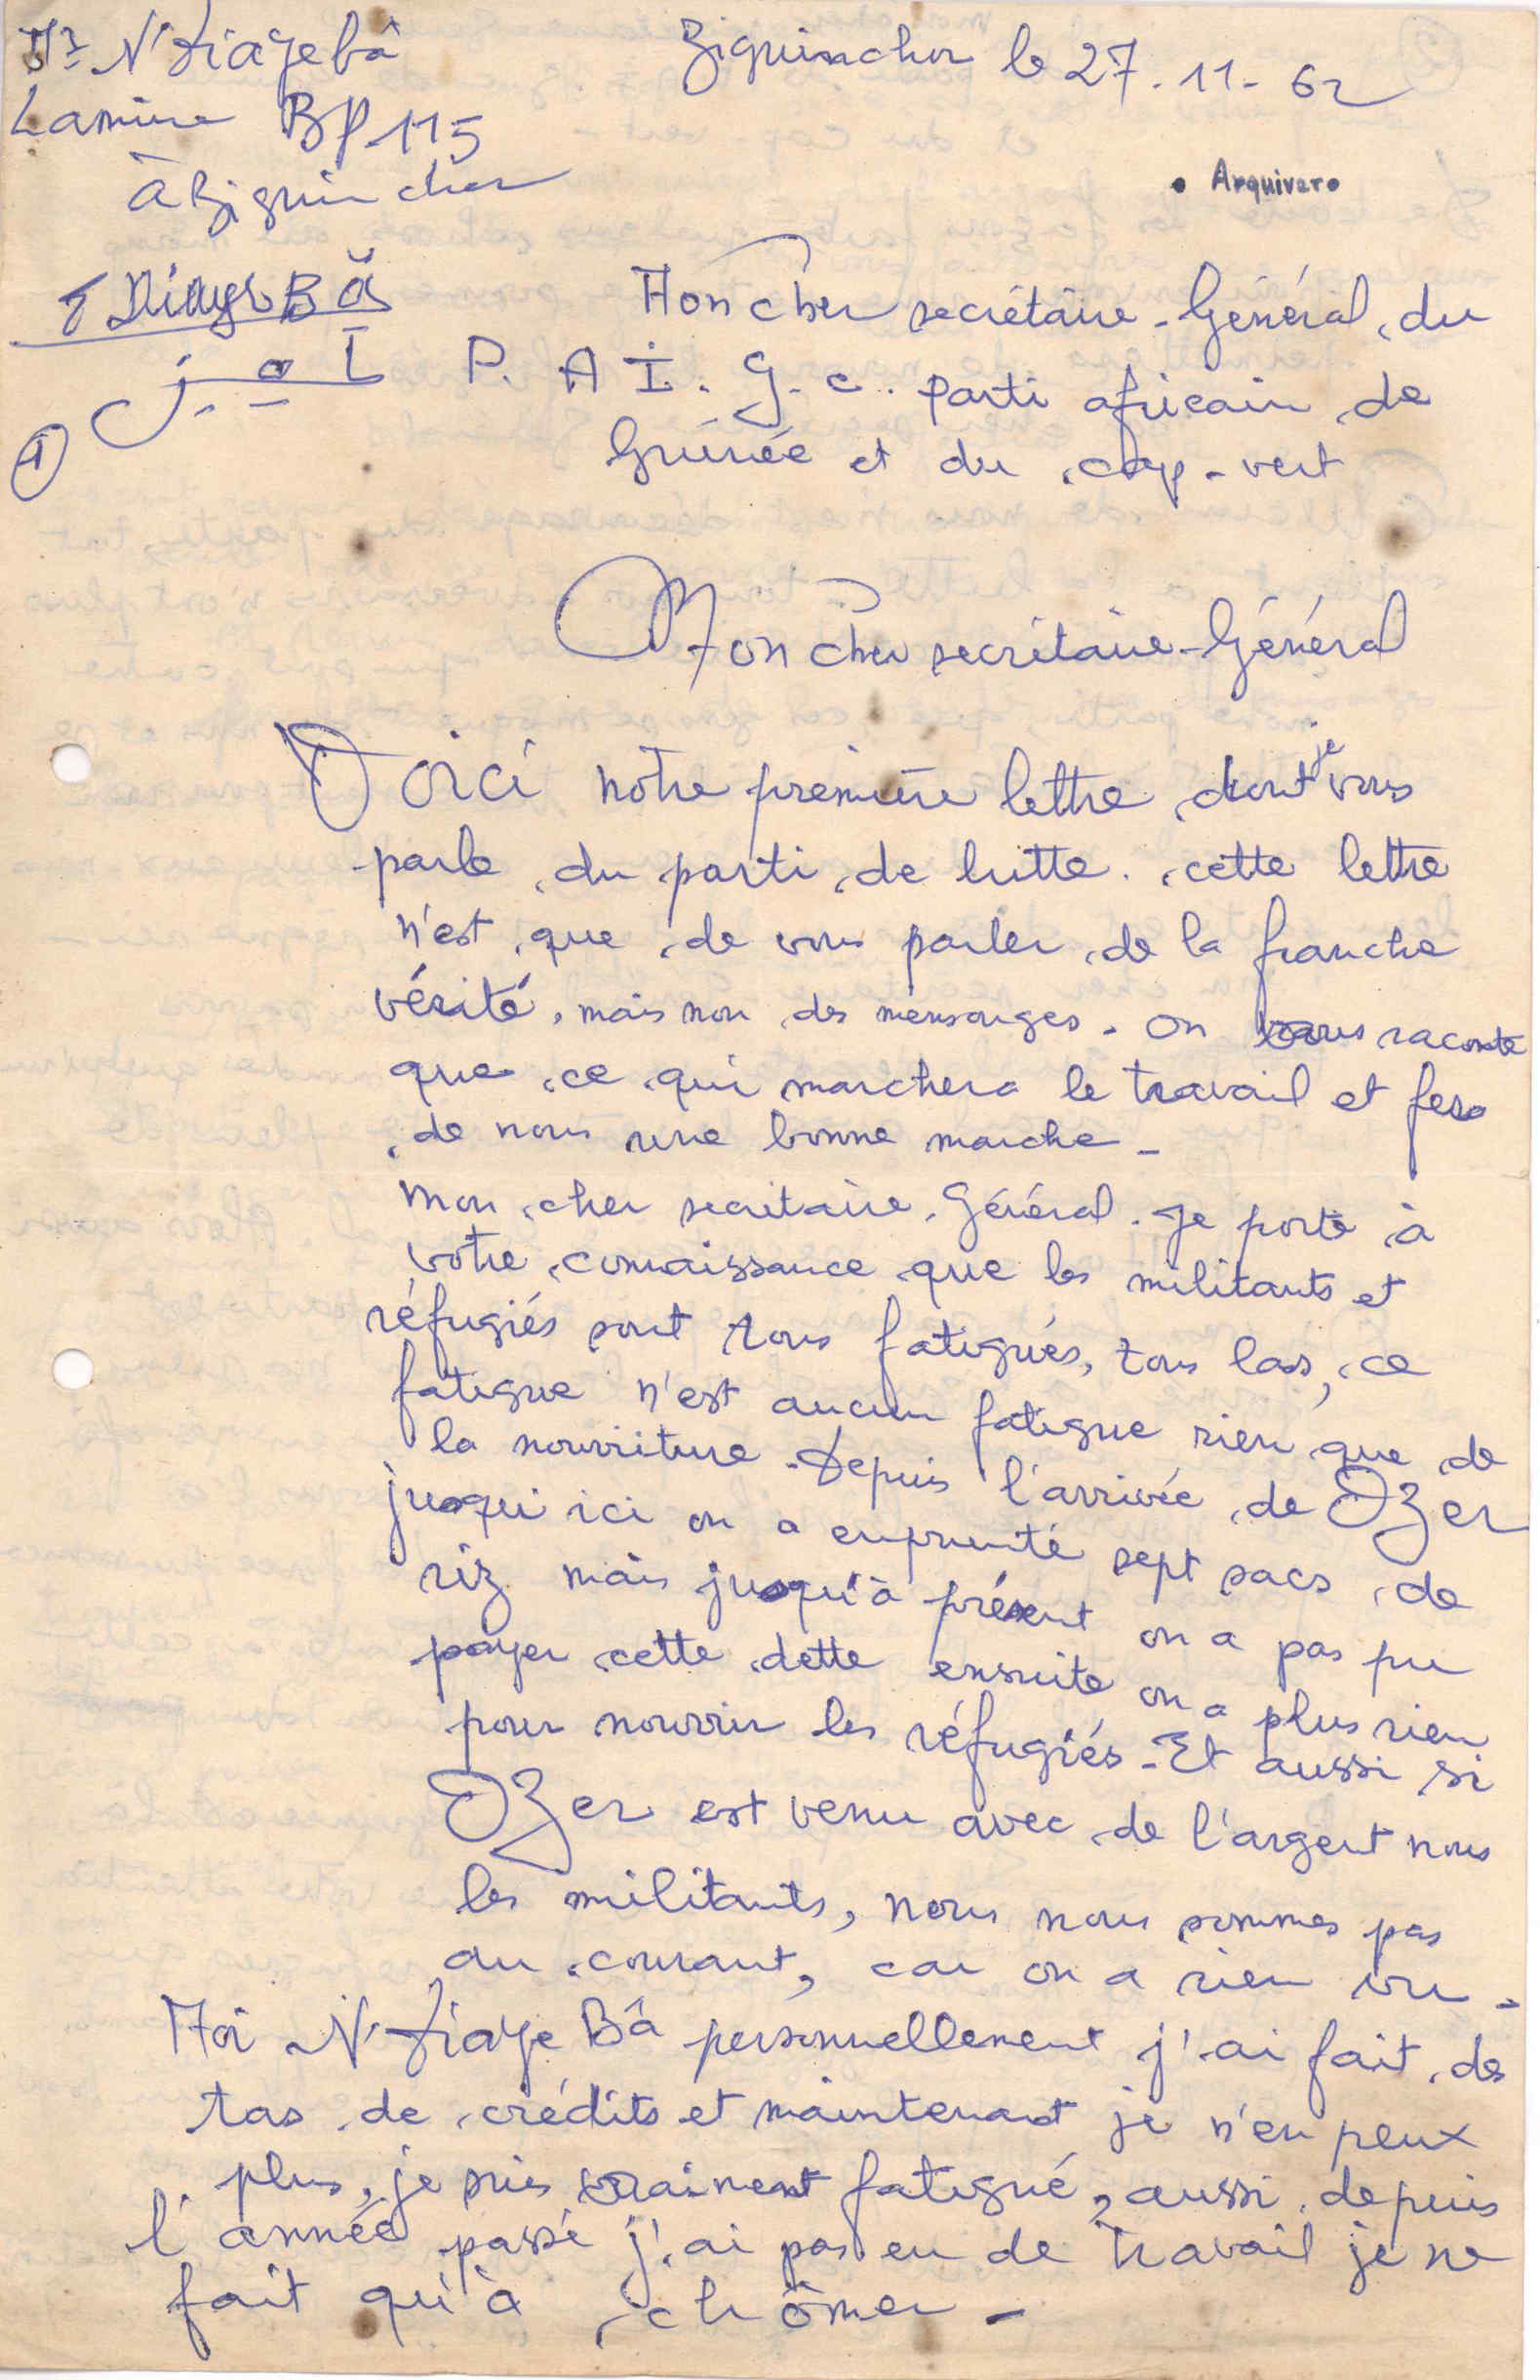 Mr N'Diaye bâ
Lamine BP 115
à Ziguinchor
Ziguinchor le 27-11-62
• Arquivar •
NDiaye Bâ
①
Mon cher secrétaire-Général du
P. A I. G. C. parti africain de
Guinée et du cap-vert
Mon cher secrétaire-Général
Voici notre première lettre dont je vous
parle du parti de lutte. cette lettre
n'est que de vous parler de la franche
vérité, mais non des mensonges. On vous raconte
que ce qui marchera le travail et fera
de nous une bonne marche -
Mon cher secrétaire. Général. Je porte à
votre connaissance que les militants et
réfugiés sont tous fatigués, tous las, ce
fatigue n'est aucun fatigue rien que de
la nourriture. Depuis l'arrivée de OZer
jusqui ici on a emprunté sept sacs de
riz mais jusqu'à présent on a pas pu
payer cette dette ensuite on a plus rien
pour nourrir les réfugiés - Et aussi si
OZer est venu avec de l'argent nous
les militants, nous nous sommes pas
au courant, car on a rien vu -
Moi N'Diaye Bâ personnellement j'ai fait des
tas de crédits et maintenant je n'en peux
plus, je suis vraiment fatigué, aussi depuis
l'année passé j'ai pas eu de travail je ne
fait qu'à chômer -